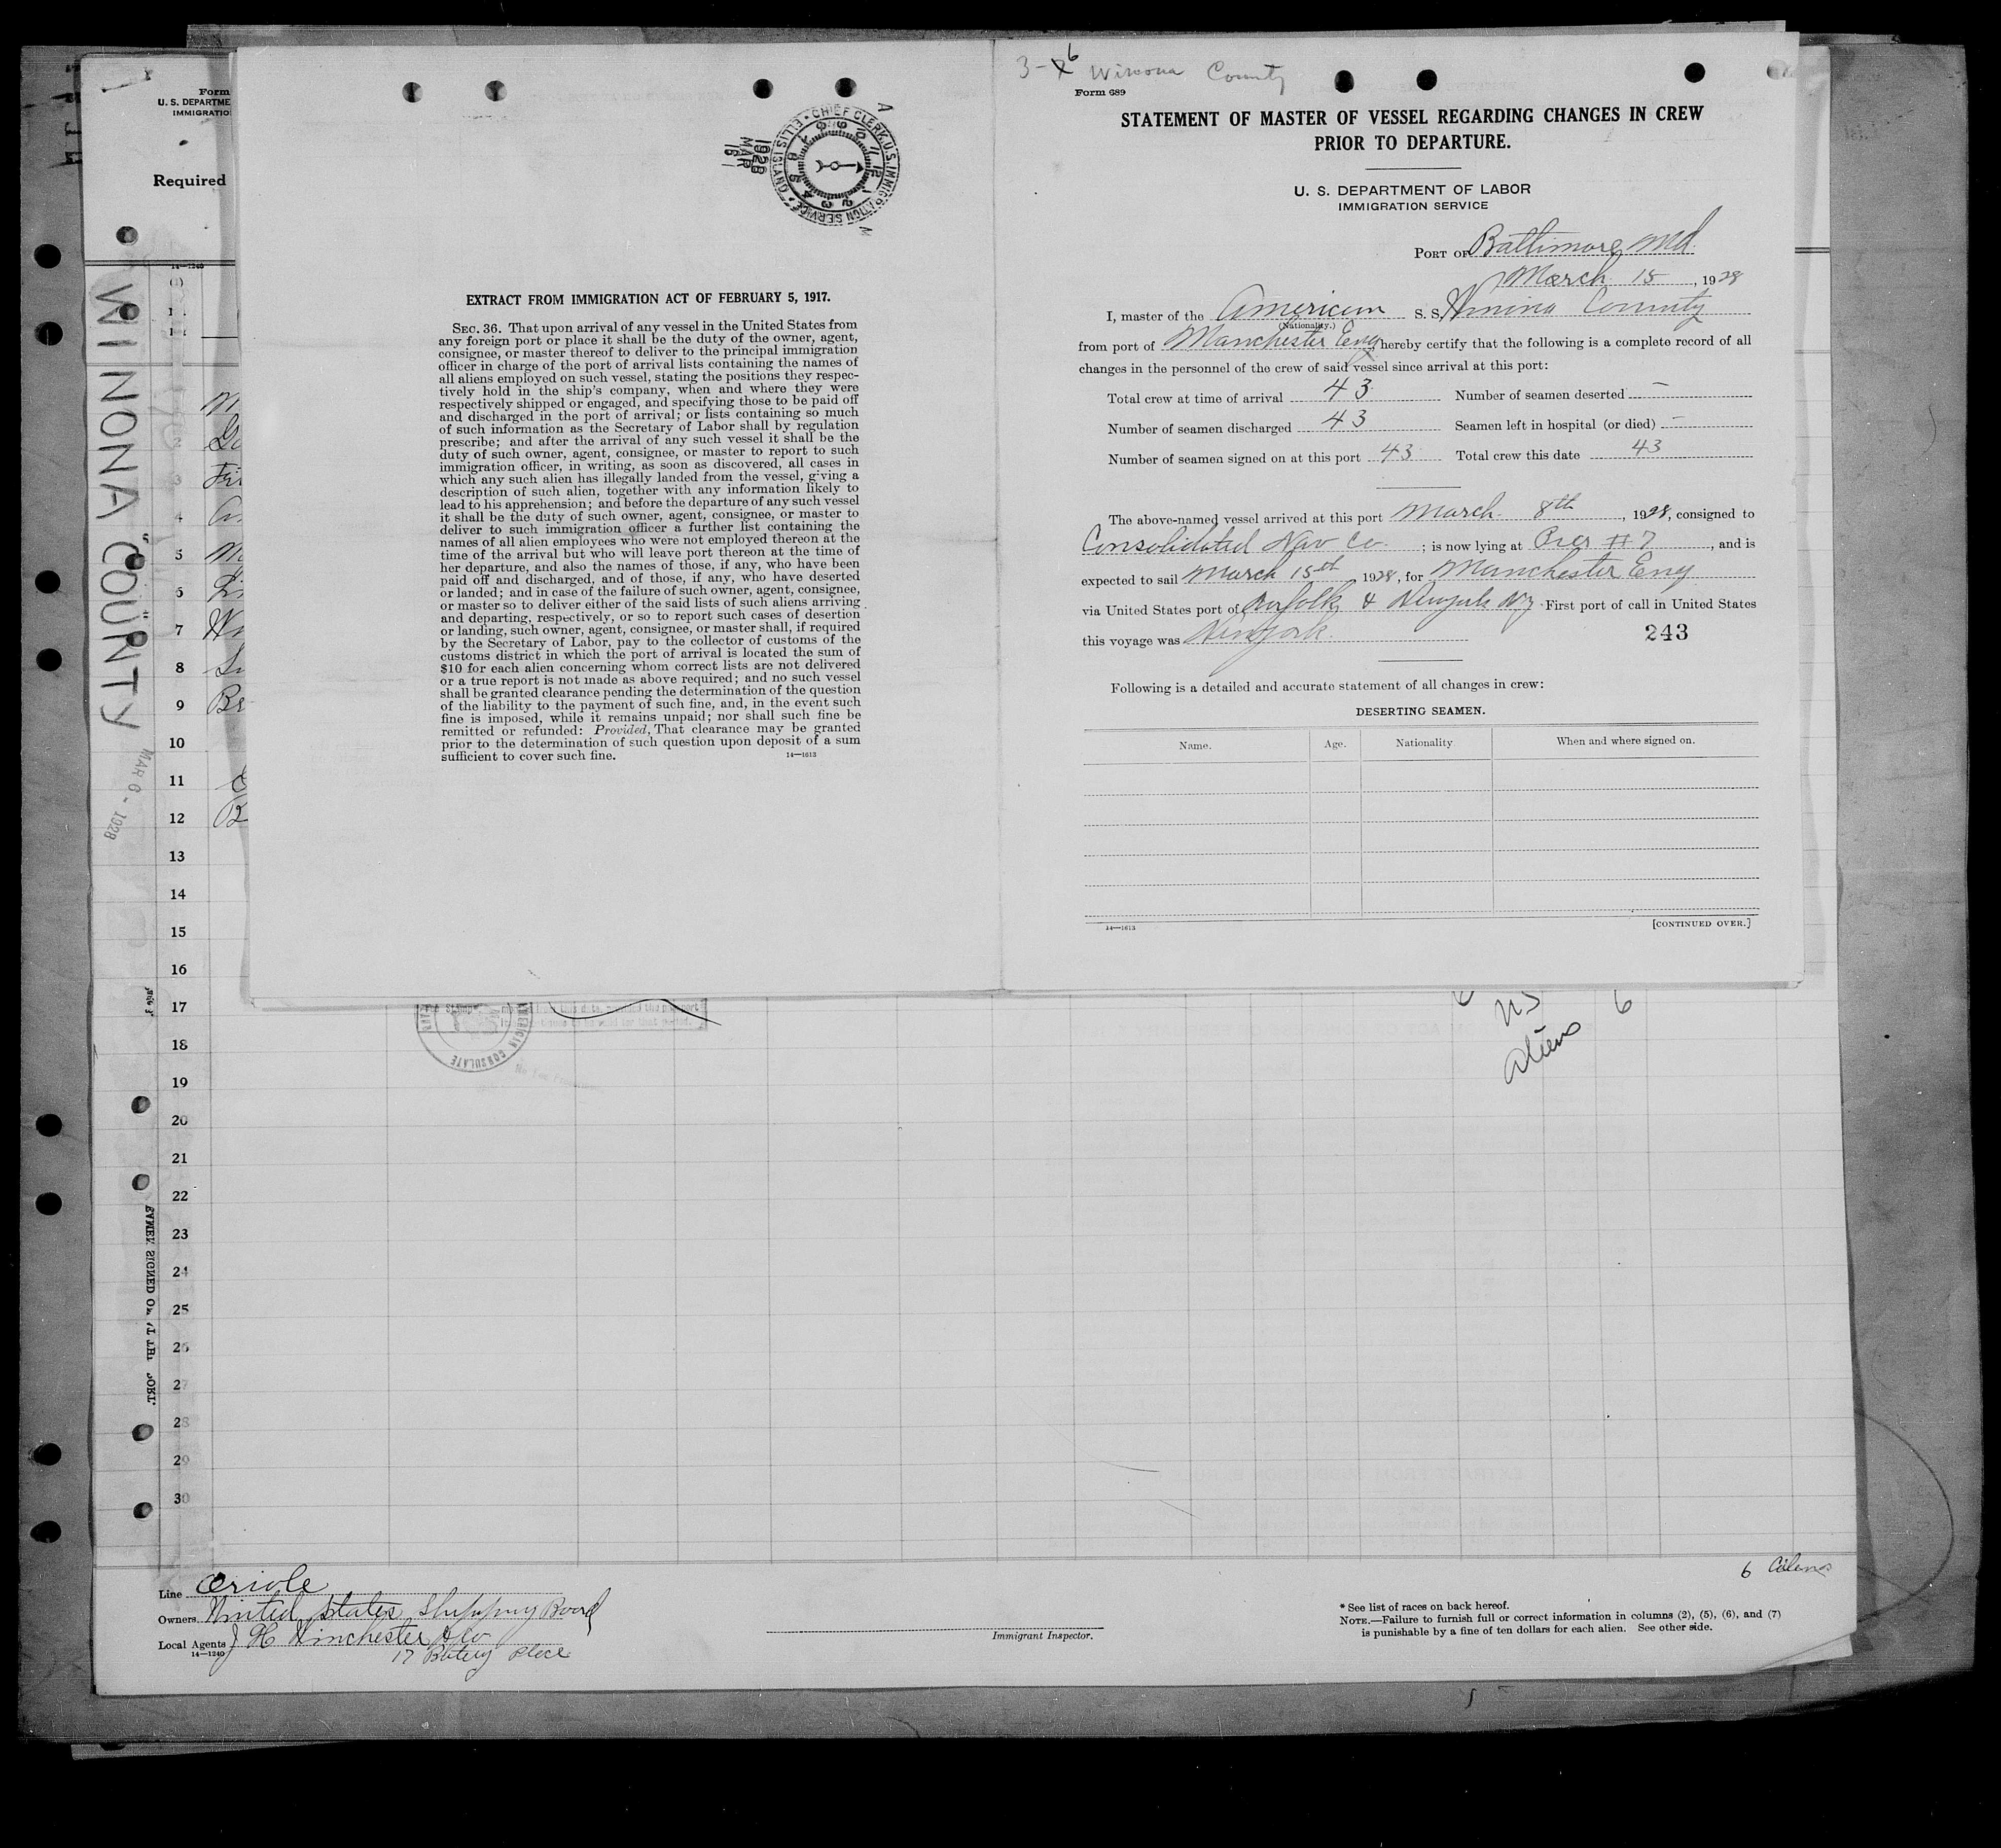 Form
U. S. DEPARTME
IMMIGRATIO
Required
14—1240
WINONA COUNTY
MAR 6 - 1928
1
2
3
4
5
6
7
8
9
10
11
12
13
14
15
16
17
18
19
20
21
22
23
24
25
26
27
28
29
30
CHIEF CLERK, U.S. IMMIGRATION SERVICE • ELLIS ISLAND •
1928
MAR
16
EXTRACT FROM IMMIGRATION ACT OF FEBRUARY 5, 1917.
SEC. 36. That upon arrival of any vessel in the United States from
any foreign port or place it shall be the duty of the owner, agent,
consignee, or master thereof to deliver to the principal immigration
officer in charge of the port of arrival lists containing the names of
all aliens employed on such vessel, stating the positions they respec-
tively hold in the ship's company, when and where they were
respectively shipped or engaged, and specifying those to be paid off
and discharged in the port of arrival; or lists containing so much
of such information as the Secretary of Labor shall by regulation
prescribe; and after the arrival of any such vessel it shall be the
duty of such owner, agent, consignee, or master to report to such
immigration officer, in writing, as soon as discovered, all cases in
which any such alien has illegally landed from the vessel, giving a
description of such alien, together with any information likely to
lead to his apprehension; and before the departure of any such vessel
it shall be the duty of such owner, agent, consignee, or master to
deliver to such immigration officer a further list containing the
names of all alien employees who were not employed thereon at the
time of the arrival but who will leave port thereon at the time of
her departure, and also the names of those, if any, who have been
paid off and discharged, and of those, if any, who have deserted
or landed; and in case of the failure of such owner, agent, consignee,
or master so to deliver either of the said lists of such aliens arriving
and departing, respectively, or so to report such cases of desertion
or landing, such owner, agent, consignee, or master shall, if required
by the Secretary of Labor, pay to the collector of customs of the
customs district in which the port of arrival is located the sum of
$10 for each alien concerning whom correct lists are not delivered
or a true report is not made as above required; and no such vessel
shall be granted clearance pending the determination of the question
of the liability to the payment of such fine, and, in the event such
fine is imposed, while it remains unpaid; nor shall such fine be
remitted or refunded: Provided, That clearance may be granted
prior to the determination of such question upon deposit of a sum
sufficient to cover such fine.
14—1613
3-6 Winona County
Form 689
STATEMENT OF MASTER OF VESSEL REGARDING CHANGES IN CREW
PRIOR TO DEPARTURE.
U. S. DEPARTMENT OF LABOR
IMMIGRATION SERVICE
PORT OF Baltimore Md.
March 15, 1928
I, master of the American S. S. Winona County
(Nationality.)
from port of Manchester Eng hereby certify that the following is a complete record of all
changes in the personnel of the crew of said vessel since arrival at this port:
Total crew at time of arrival 43 Number of seamen deserted —
Number of seamen discharged 43 Seamen left in hospital (or died) -
Number of seamen signed on at this port 43 Total crew this date 43
The above-named vessel arrived at this port March 8th, 1928, consigned to
Consolidated Nav Co ; is now lying at Pier #7, and is
expected to sail March 15th 1928, for Manchester Eng
via United States port of Norfolk & Newyork NY. First port of call in United States
this voyage was Newyork.
243
Following is a detailed and accurate statement of all changes in crew:
DESERTING SEAMEN.
Name. Age. Nationality When and where signed on.
14—1613
[CONTINUED OVER.]
AMERICAN CONSULATE
No Fee
NS
aliens
6
EYMEN SIGNED ON
6 Aliens
Line Oriole
Owners United States Shipping Board
Local Agents J H Winchester & Co
14—1240
17 Batery Place
Immigrant Inspector.
* See list of races on back hereof.
NOTE.—Failure to furnish full or correct information in columns (2), (5), (6), and (7)
is punishable by a fine of ten dollars for each alien. See other side.